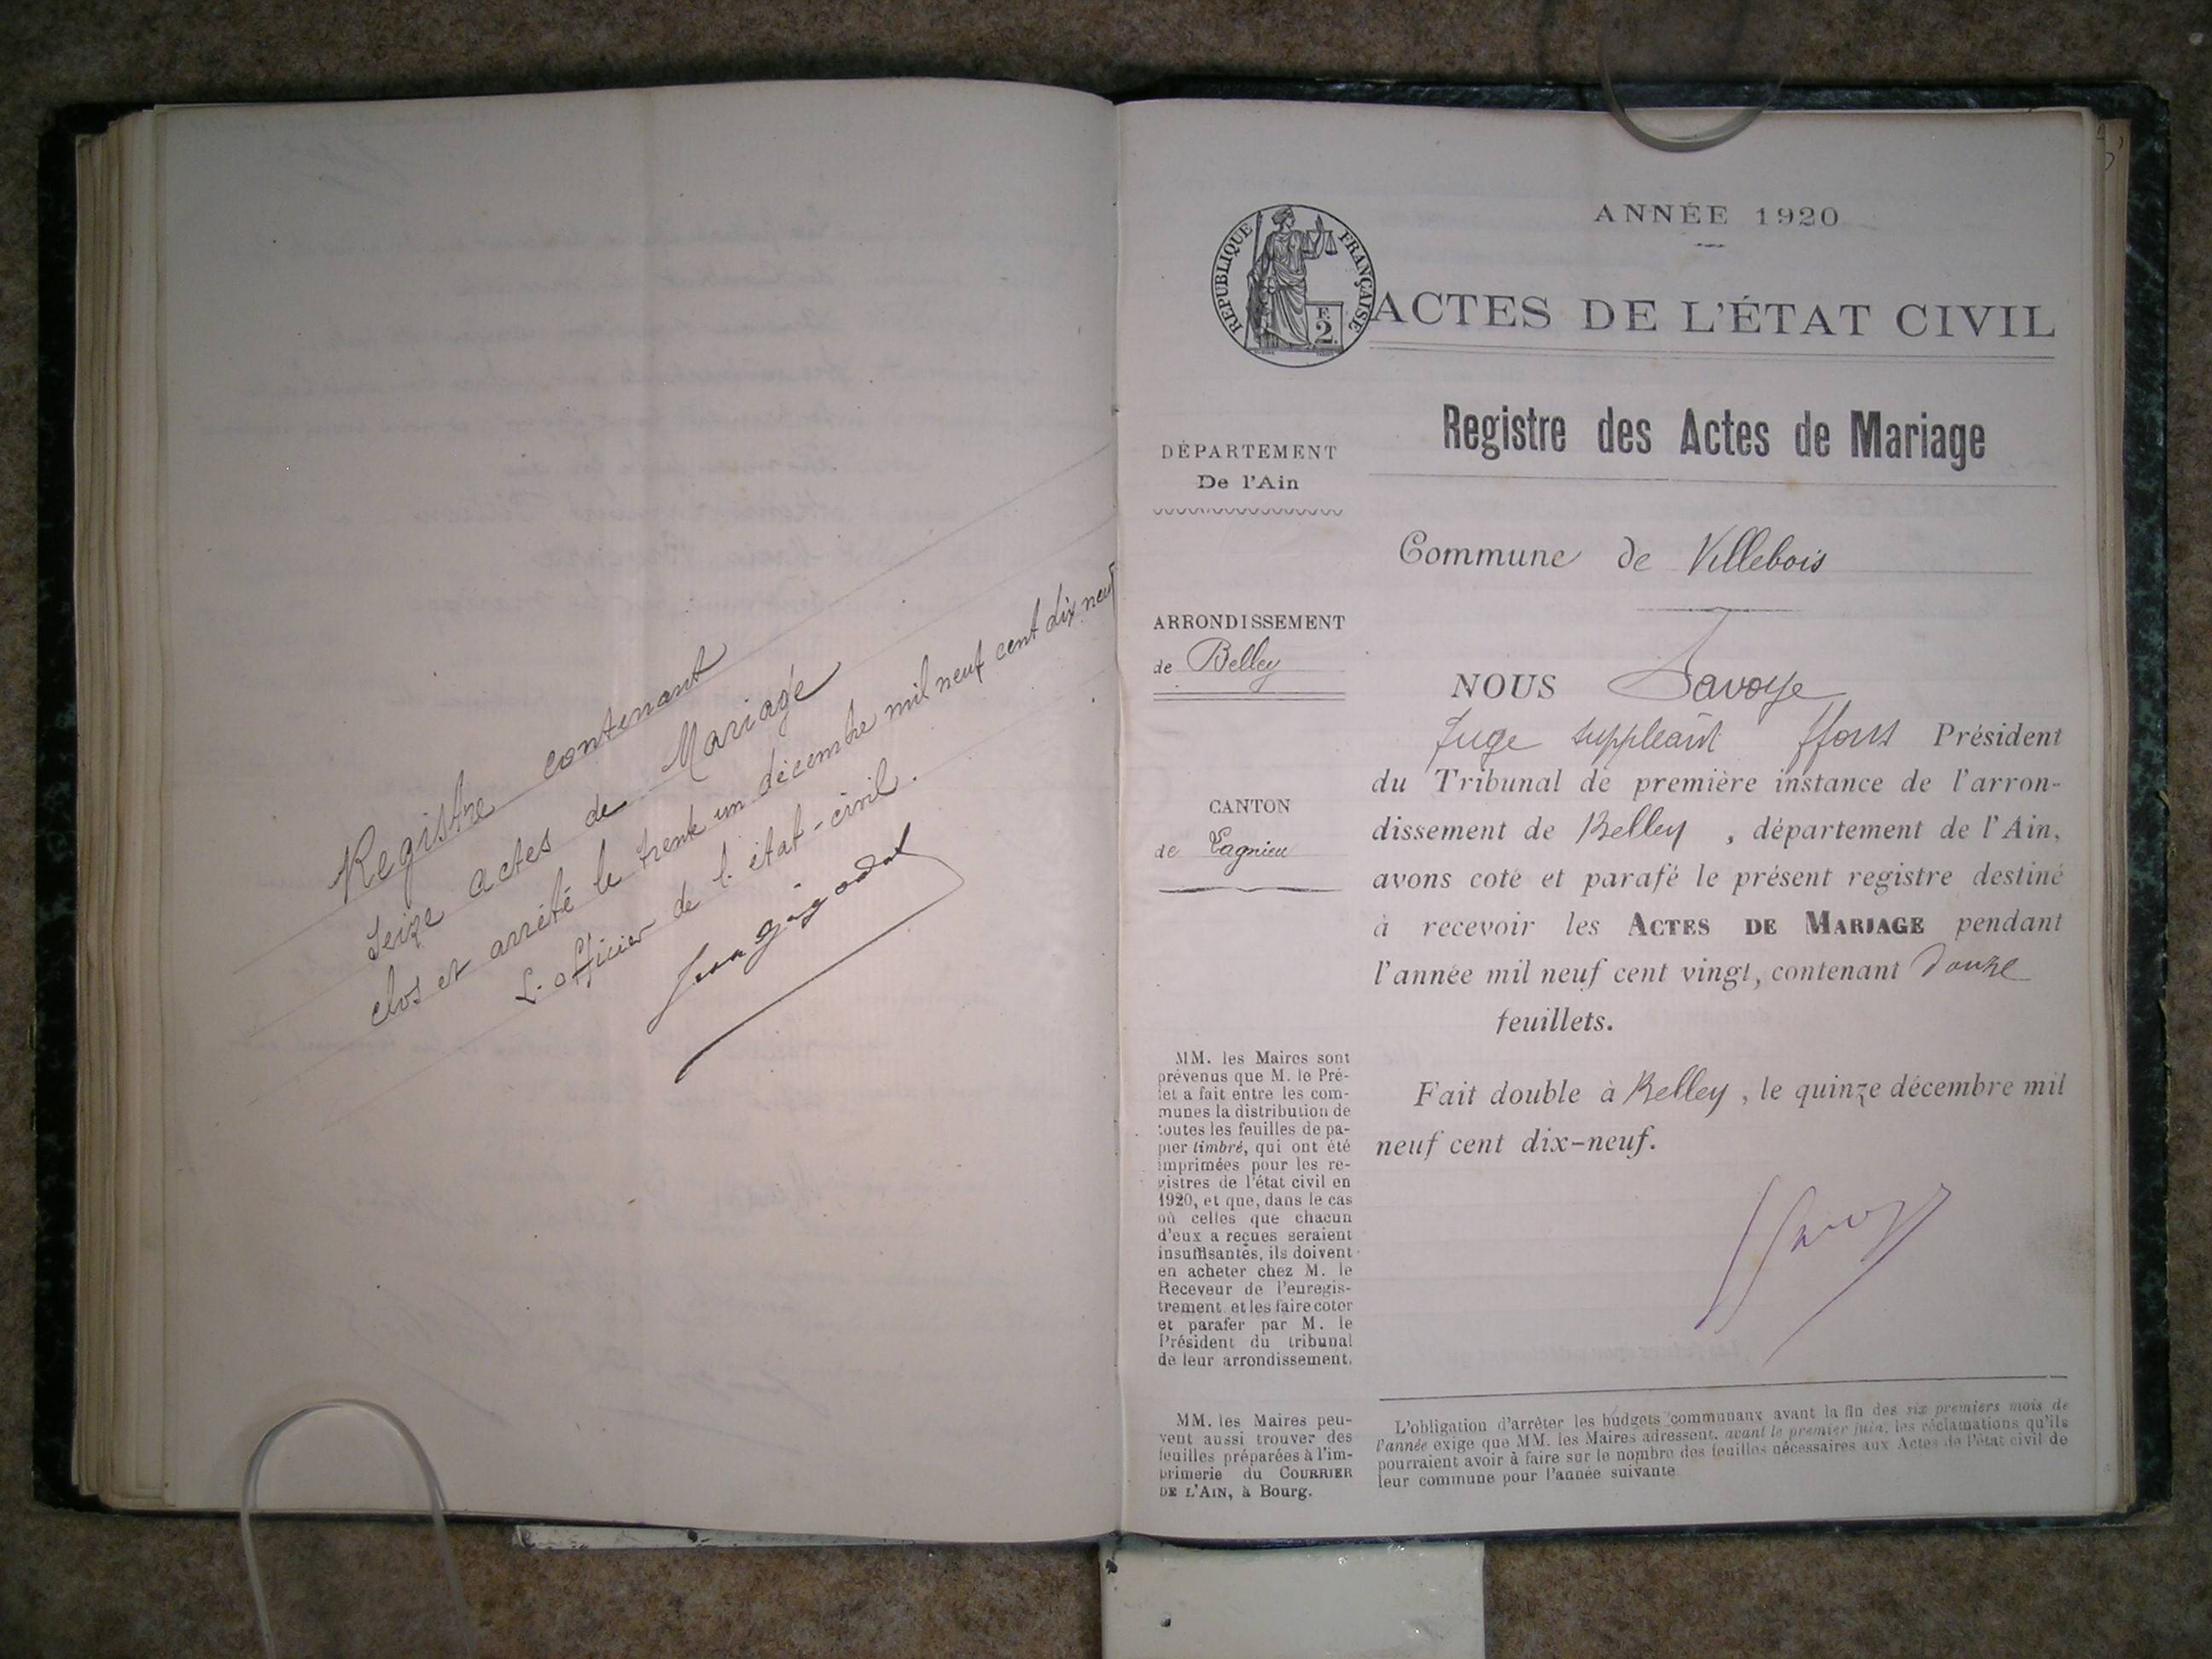 Registre contenant
Seize actes de Mariage
clos et arrêté le trente un décembre mil neuf cent dix neuf
L'officier de l'état-civil.
ANNÉE 1920
RÉPUBLIQUE FRANÇAISE
F. 2.
ACTES DE L'ÉTAT CIVIL
Registre des Actes de Mariage
DÉPARTEMENT
De l'Ain
Commune de Villebois
ARRONDISSEMENT
de Belley
CANTON
de Lagnieu
NOUS Savoye
Juge suppléant ffons Président
du Tribunal de première instance de l'arron-
dissement de Belley, département de l'Ain,
avons coté et parafé le présent registre destiné
à recevoir les ACTES DE MARIAGE pendant
l'année mil neuf cent vingt, contenant douze
feuillets.
Fait double à Belley, le quinze décembre mil
neuf cent dix-neuf.
MM. les Maires sont
prévenus que M. le Pré-
fet a fait entre les com-
munes la distribution de
toutes les feuilles de pa-
pier timbré, qui ont été
imprimées pour les re-
gistres de l'état civil en
1920, et que, dans le cas
où celles que chacun
d'eux a reçues seraient
insuffisantes, ils doivent
en acheter chez M. le
Receveur de l'enregis-
trement et les faire coter
et parafer par M. le
Président du tribunal
de leur arrondissement.
MM. les Maires peu-
vent aussi trouver des
feuilles préparées à l'im-
primerie du COURRIER
DE L'AIN, à Bourg.
L'obligation d'arrêter les budgets communaux avant la fin des six premiers mois de
l'année exige que MM. les Maires adressent, avant le premier juin, les réclamations qu'ils
pourraient avoir à faire sur le nombre des feuilles nécessaires aux Actes de l'état civil de
leur commune pour l'année suivante